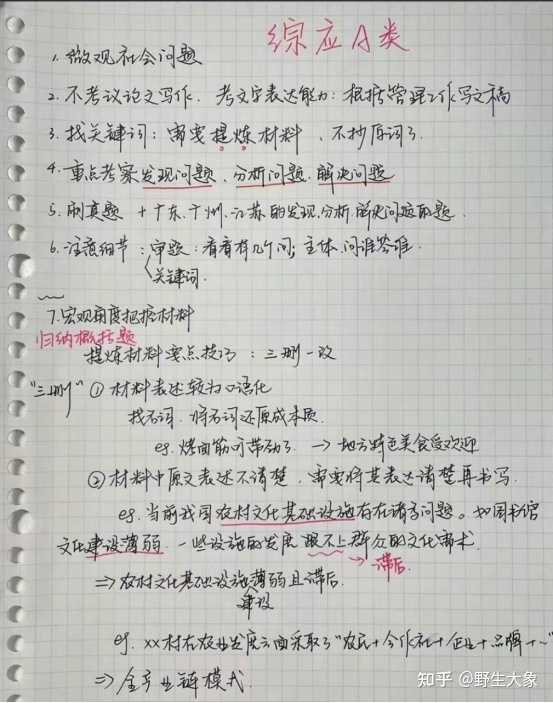 综应A类
1. 微观社会问题
2. 不考议论文写作. 考文字表达能力: 根据管理工作写文稿
3. 找关键词: 需要提炼材料 . 不抄原词了.
4. 重点考察发现问题、分析问题、解决问题
5. 刷真题 + 广东、广州、江苏的发现、分析、解决问题的题.
6. 注意细节: 审题: 看看有几个问; 主体. 问谁答谁.
关键词.
7. 宏观角度把握材料
归纳概括题
提炼材料要点技巧: 三删一改
"三删" ① 材料表述较为口语化
找名词. 将名词还原成本质.
eg. 烤面筋可带劲了. → 地方特色美食受欢迎
② 材料中原文表述不清楚. 需要将其表达清楚再书写.
eg. 当前我国农村文化基础设施存在诸多问题。如图书馆
文化建设薄弱. 一些设施的发展跟不上群众的文化需求.
→ 滞后
⇒ 农村文化基础设施薄弱且滞后.
建设
eg. xx村在农业发展方面采取了"农民+合作社+企业+品牌+~"
⇒ 全产业链模式.
知乎 @野生大象